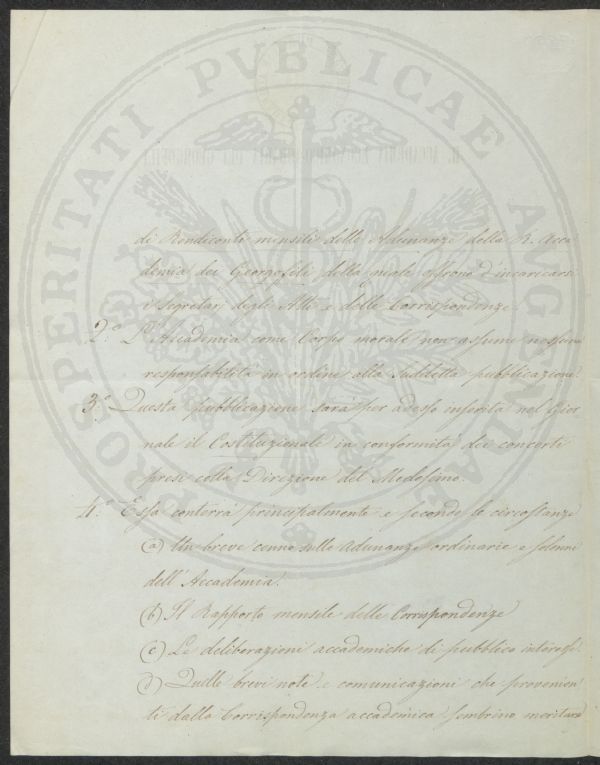 PROSPERITATI PVBLICAE AVGENDAE
R. ACCADEMIA ECONOMICO-AGRARIA DEI GEORGOFILI
di Rendiconti mensili delle Adunanze della R. Acca
demia dei Georgofili della quale offrono d'incaricarsi
i Segretari degli Atti e delle Corrispondenze.
2.° L'Accademia come Corpo morale non assume nessuna
responsabilità in ordine alla suddetta pubblicazione.
3.° Questa pubblicazione sarà per adesso inserita nel Gior
nale il Costituzionale in conformità dei concerti
presi colla Direzione del Medesimo.
4.° Essa conterrà principalmente e secondo le circostanze
(a) Un breve cenno sulle adunanze ordinarie e solenni
dell'Accademia.
(b) Il Rapporto mensile delle Corrispondenze
(c) Le deliberazioni accademiche di pubblico interesse.
(d) Quelle brevi note e comunicazioni che provenien
ti dalla Corrispondenza accademica sembrino meritare